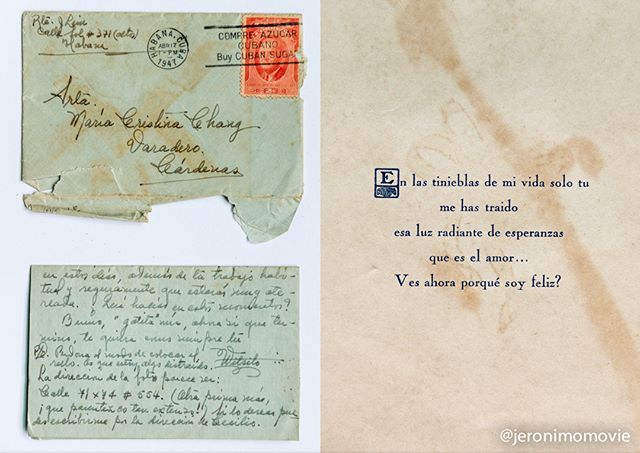 Rte. J Luis
Calle Sol # 371 (altos)
Habana
HABANA, CUBA
ABR 17
PM
1947
COMPRE AZUCAR
CUBANO
Buy CUBAN SUGA
Srta.
María Cristina Chang
Varadero.
Cárdenas
en estos días, además de tu trabajo habi-
tual y seguramente que estarás muy ate-
reada. ¿ Qué hacías en estos momentos?
Bueno, "gatita" mía, ahora sí que ter-
mino, te quiere como siempre tu
P/D. Perdona el modo de colocar el
sello. Es que estoy algo distraído.
La dirección de la foto parece ser:
Calle 71 x 74 # 554. (Otra prima más,
¡ que parentezco tan extenso!!) Si lo deseas pue-
des escribirme por la dirección de Cecilio.
En las tinieblas de mi vida solo tu
me has traido
esa luz radiante de esperanzas
que es el amor...
Ves ahora porqué soy feliz?
@jeronimomovie